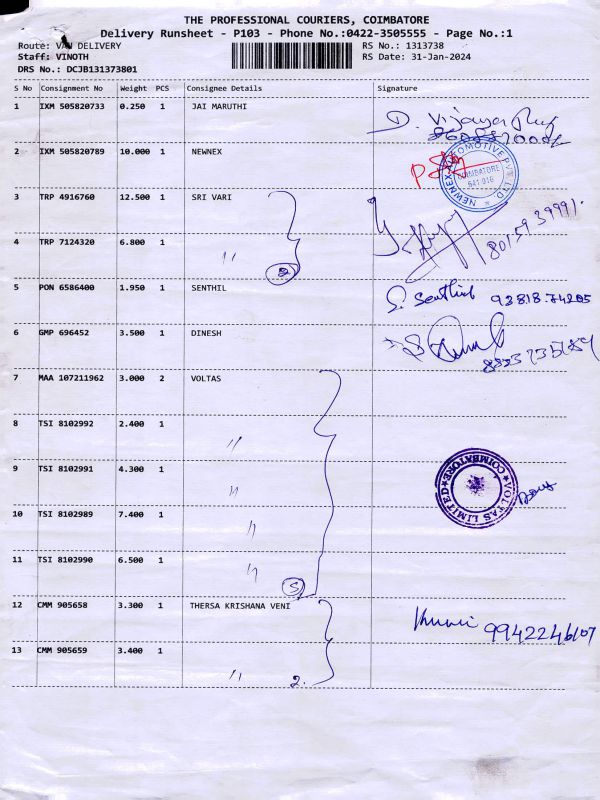 THE PROFESSIONAL COURIERS, COIMBATORE
Delivery Runsheet - P103 - Phone No.:0422-3505555 - Page No.:1
Route: VAN DELIVERY RS No.: 1313738
Staff: VINOTH RS Date: 31-Jan-2024
DRS No.: DCJB131373801
S No Consignment No Weight PCS Consignee Details Signature
1 IXM 505820733 0.250 1 JAI MARUTHI
D. Vijaya
2 IXM 505820789 10.000 1 NEWNEX
NEWNEX AUTOMOTIVE PVT LTD
COIMBATORE
641 016
3 TRP 4916760 12.500 1 SRI VARI
80159 39991.
4 TRP 7124320 6.800 1 "
2
5 PON 6586400 1.950 1 SENTHIL
S. Senthil 93818.74205
6 GMP 696452 3.500 1 DINESH
7 MAA 107211962 3.000 2 VOLTAS
8 TSI 8102992 2.400 1 "
9 TSI 8102991 4.300 1 "
VOLTAS LIMITED COIMBATORE
10 TSI 8102989 7.400 1 "
11 TSI 8102990 6.500 1 "
5
12 CMM 905658 3.300 1 THERSA KRISHANA VENI
9942246107
13 CMM 905659 3.400 1 " 2.